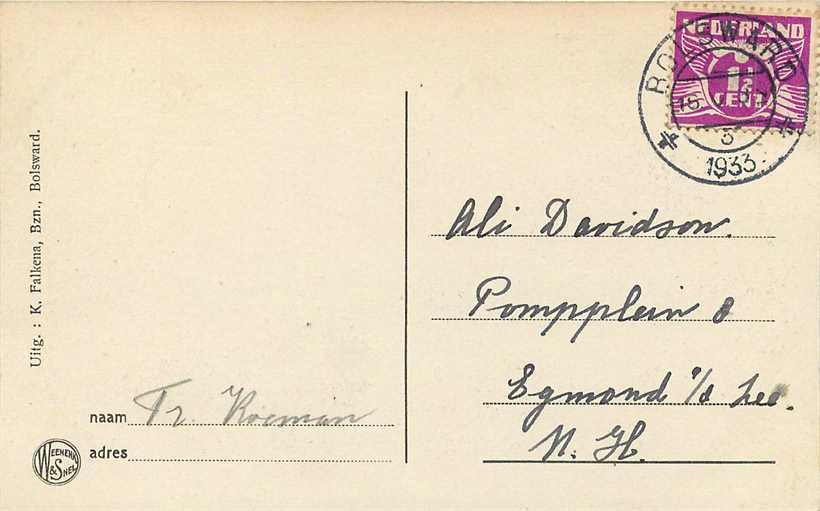 NEDERLAND
1½
CENT
BOLSWARD
16
3
1933
Ali Davidson.
Pompplein 8
Egmond a/d Zee.
N. H.
Uitg. : K. Falkena, Bzn., Bolsward.
naam Tr Koeman
adres
WEENENK
& SNEL